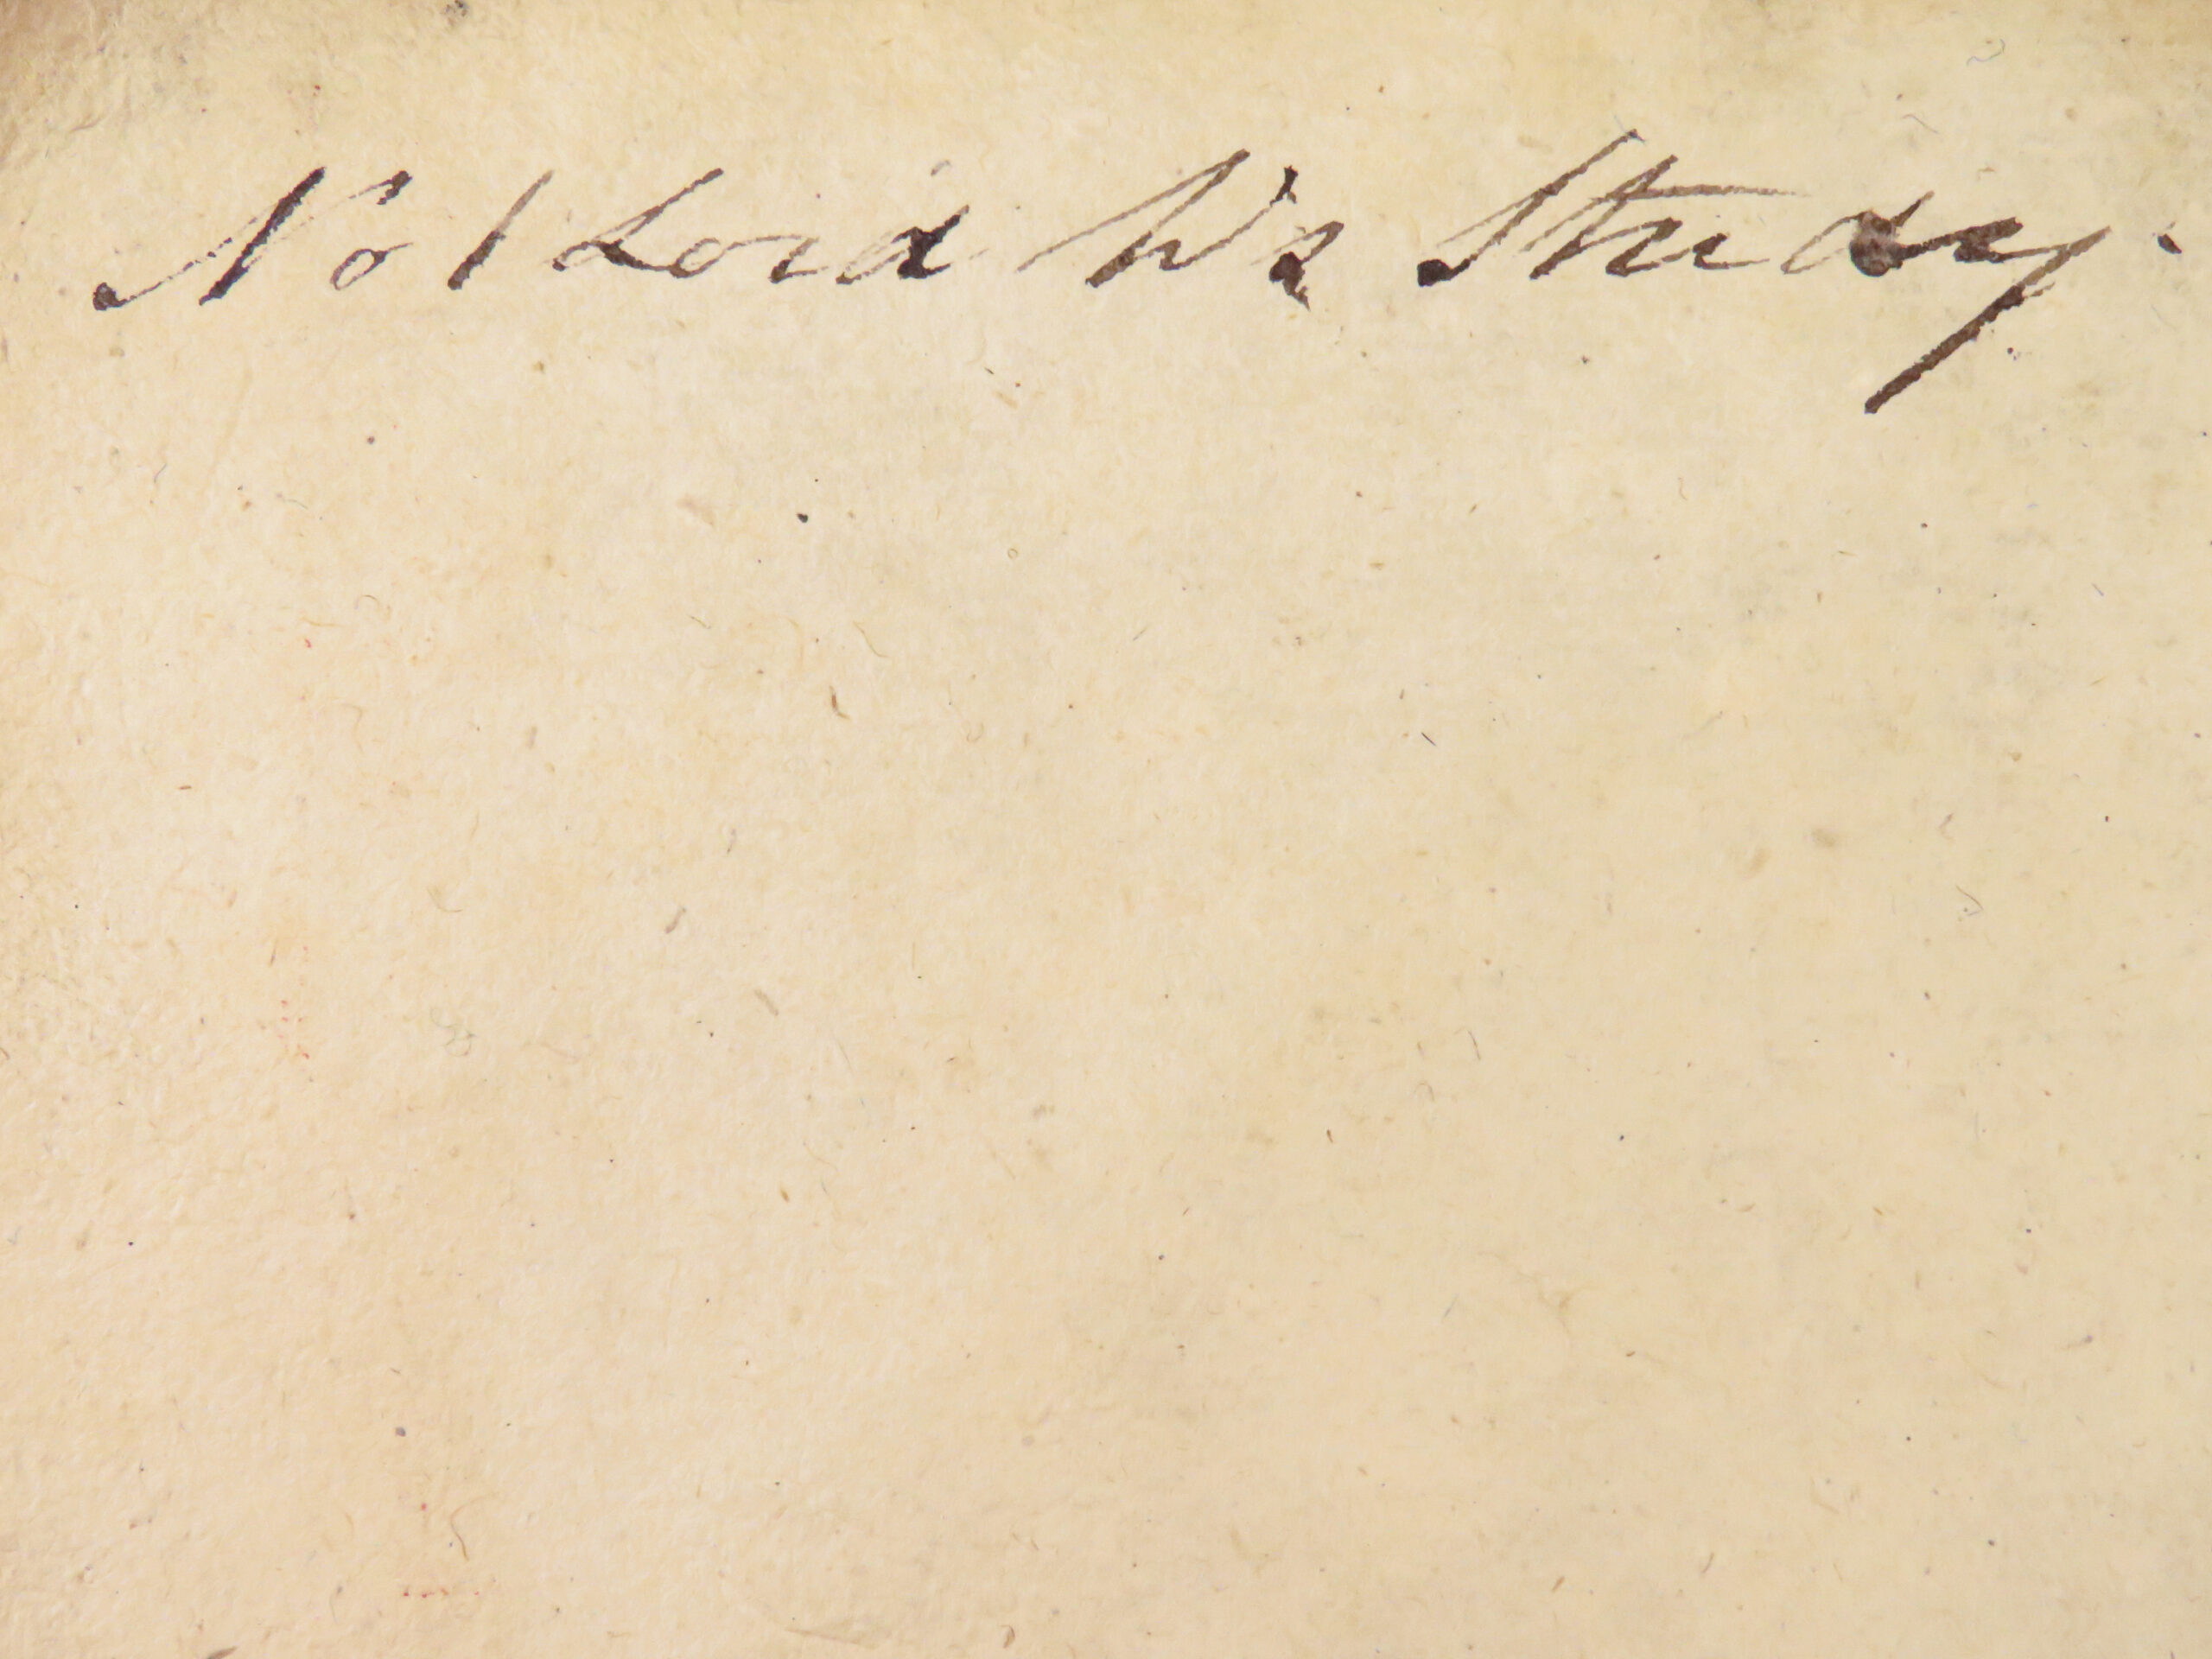 No 1 Lord W's Study.